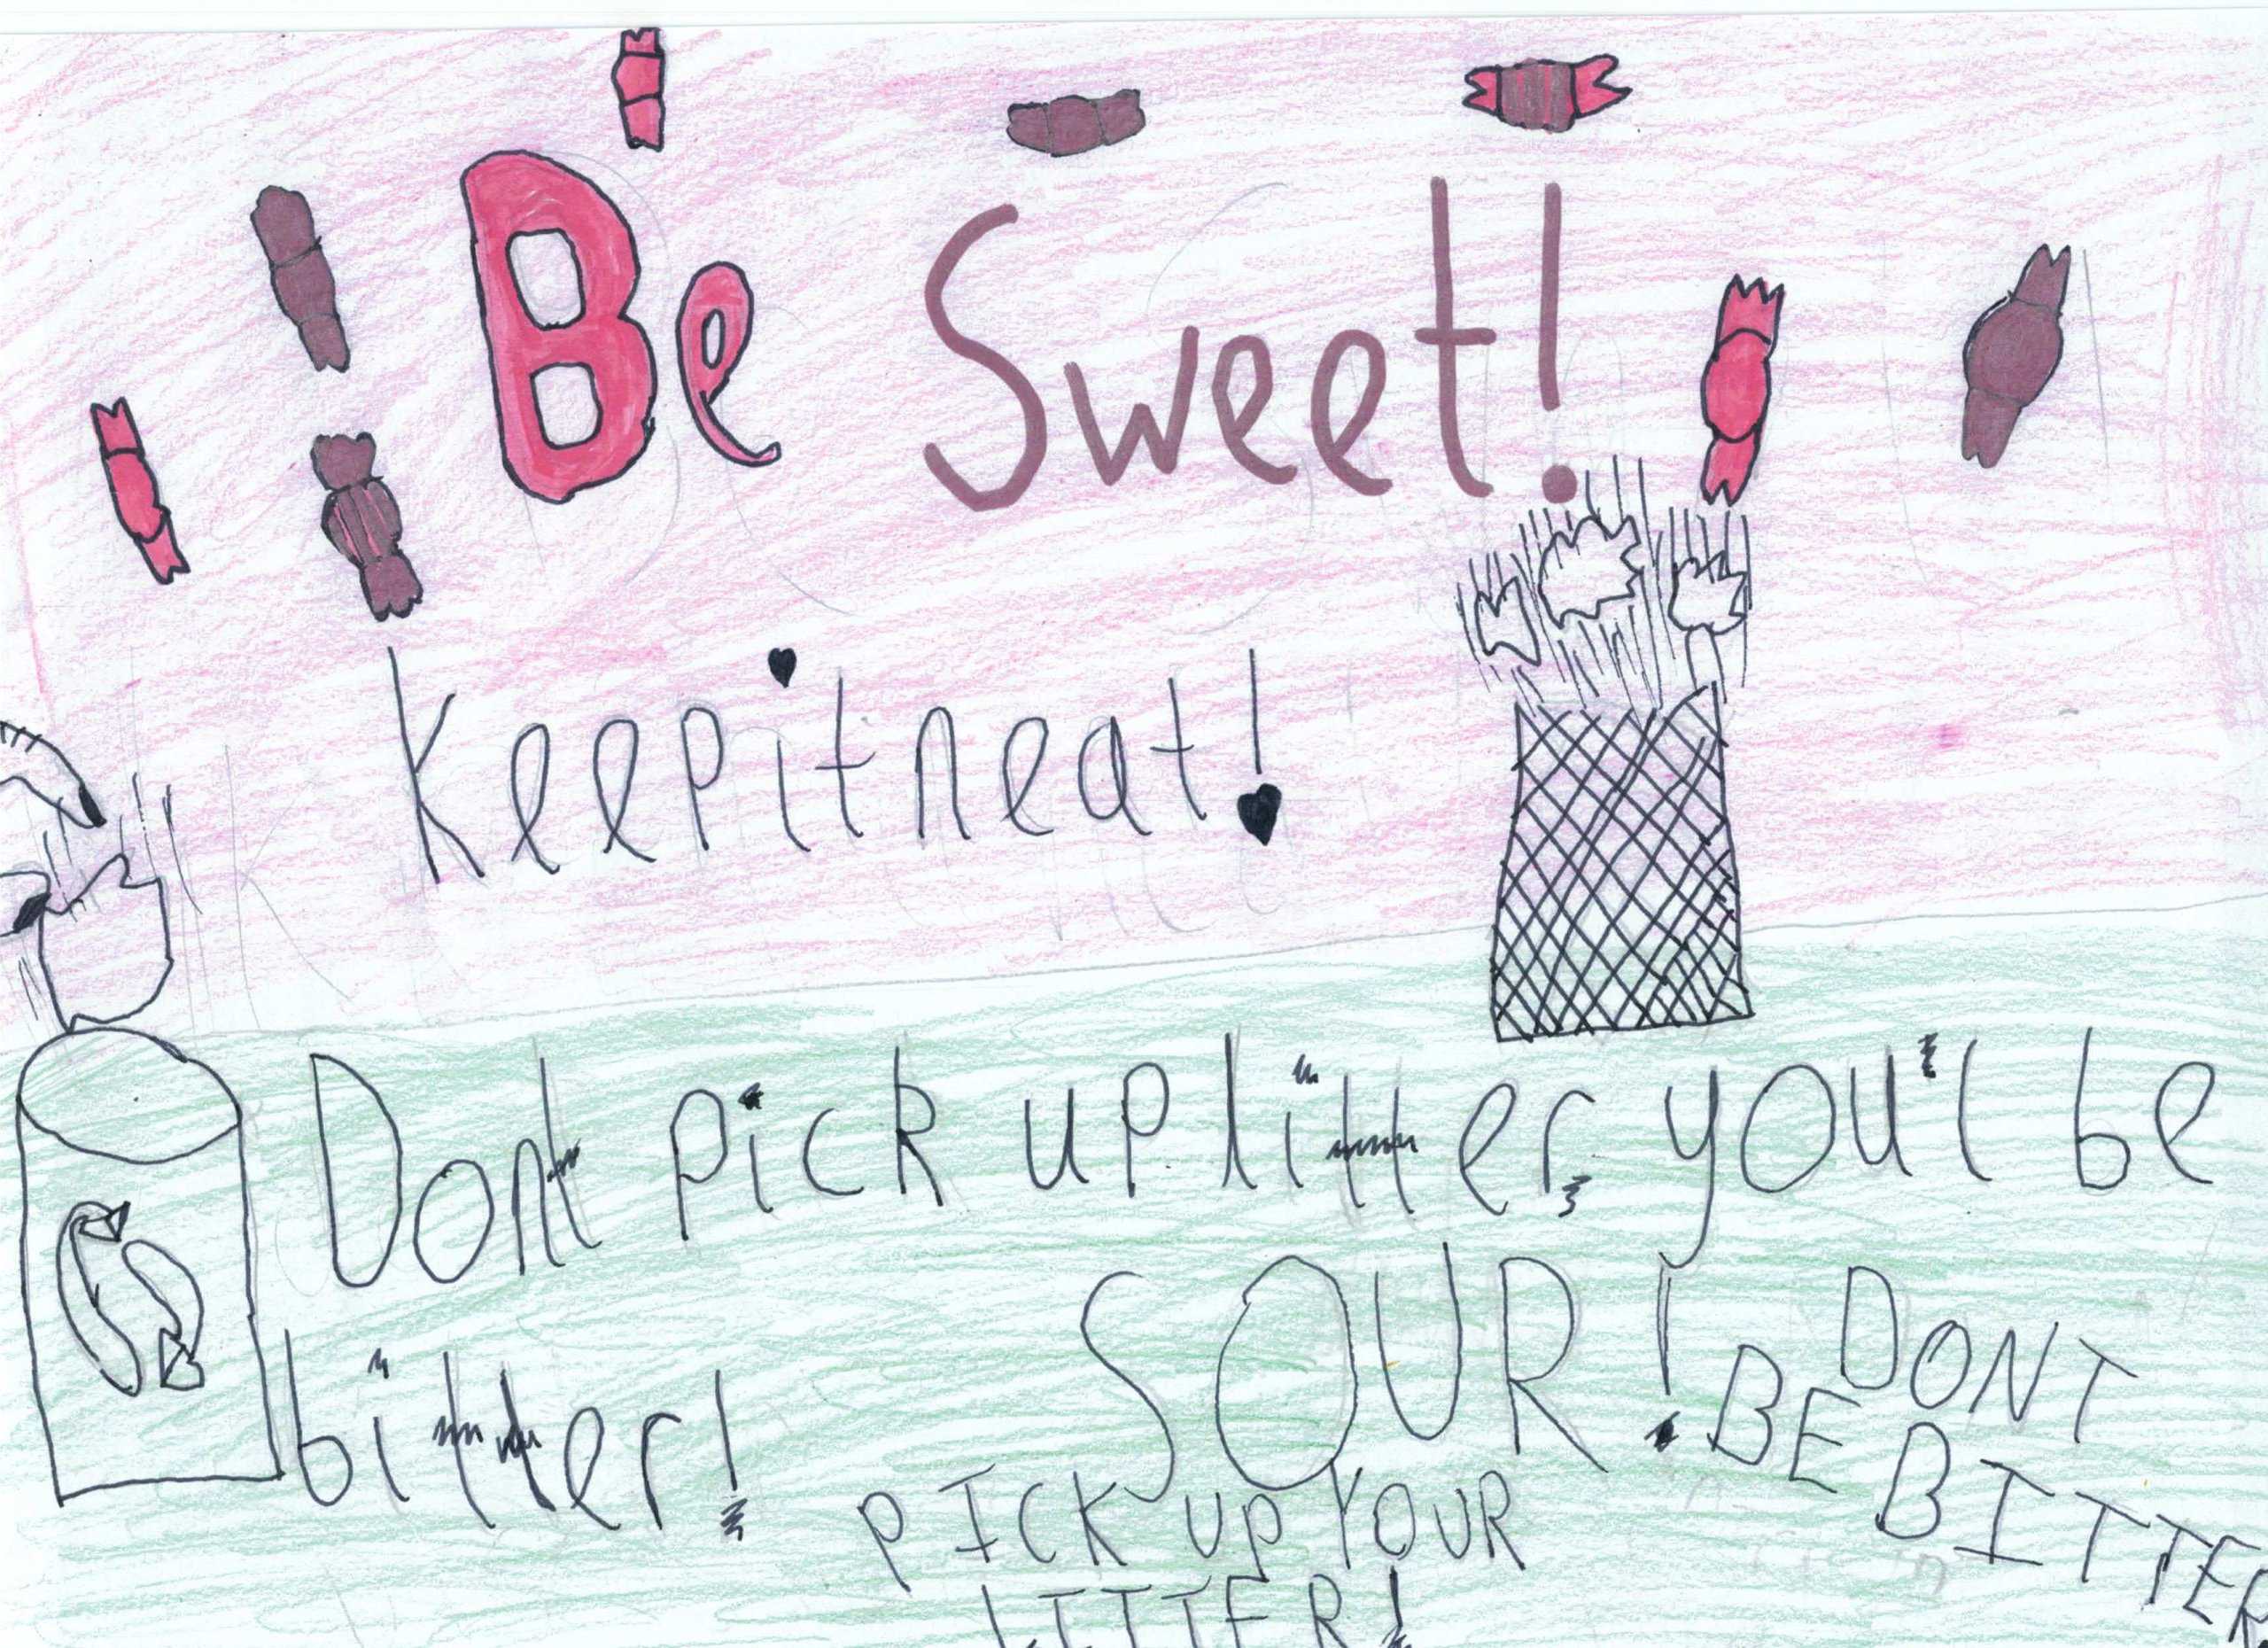 Be Sweet!
Keep it neat!
Dont pick up litter, you'l be
bitter!
SOUR!
PICK UP YOUR
LITTER!
DONT
BE
BITTER